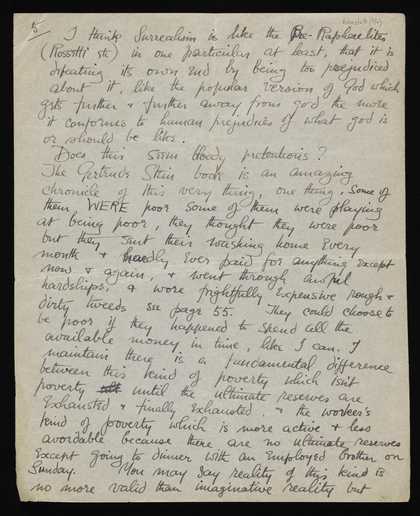 5/
I think Surrealism is like the Pre-Raphaelites
(Rossetti etc) in one particular at least, that it is
defeating its own end by being too prejudiced
about it, like the popular version of God which
gets further & further away from god the more
it conforms to human prejudices of what god is
or should be like.
Does this seem bloody pretentious?
The Gertrude Stein book is an amazing
chronicle of this very thing, one thing, some of
them WERE poor some of them were playing
at being poor, they thought they were poor
but they sent their washing home every
month & hardly ever paid for anything except
now & again, & went through awful
hardships, & wore frightfully expensive rough &
dirty tweeds see page 55. They could choose to
be poor if they happened to spend all the
available money in time, like I can. I
maintain there is a fundamental difference
between this kind of poverty which isnt
poverty until the ultimate reserves are
exhausted & finally exhausted. & the worker's
kind of poverty which is more active & less
avoidable because there are no ultimate reserves
except going to dinner with an employed brother on
Sunday. You may say reality of this kind is
no more valid than imaginative reality but